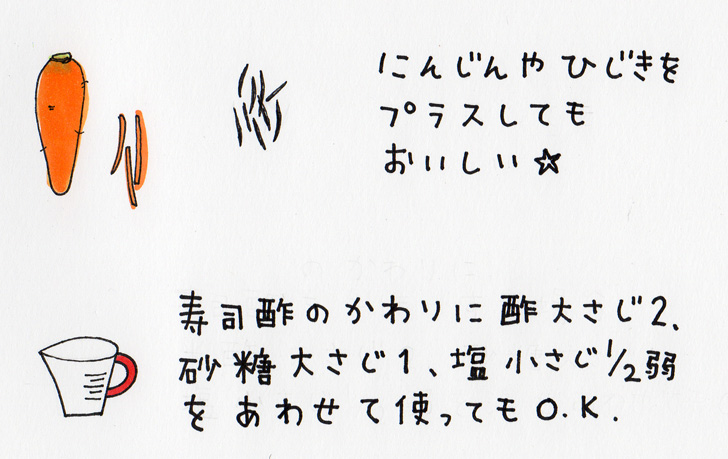 にんじんやひじきを
プラスしても
おいしい☆
寿司酢のかわりに酢大さじ2、
砂糖大さじ1、塩小さじ1/2弱
をあわせて使ってもO.K.